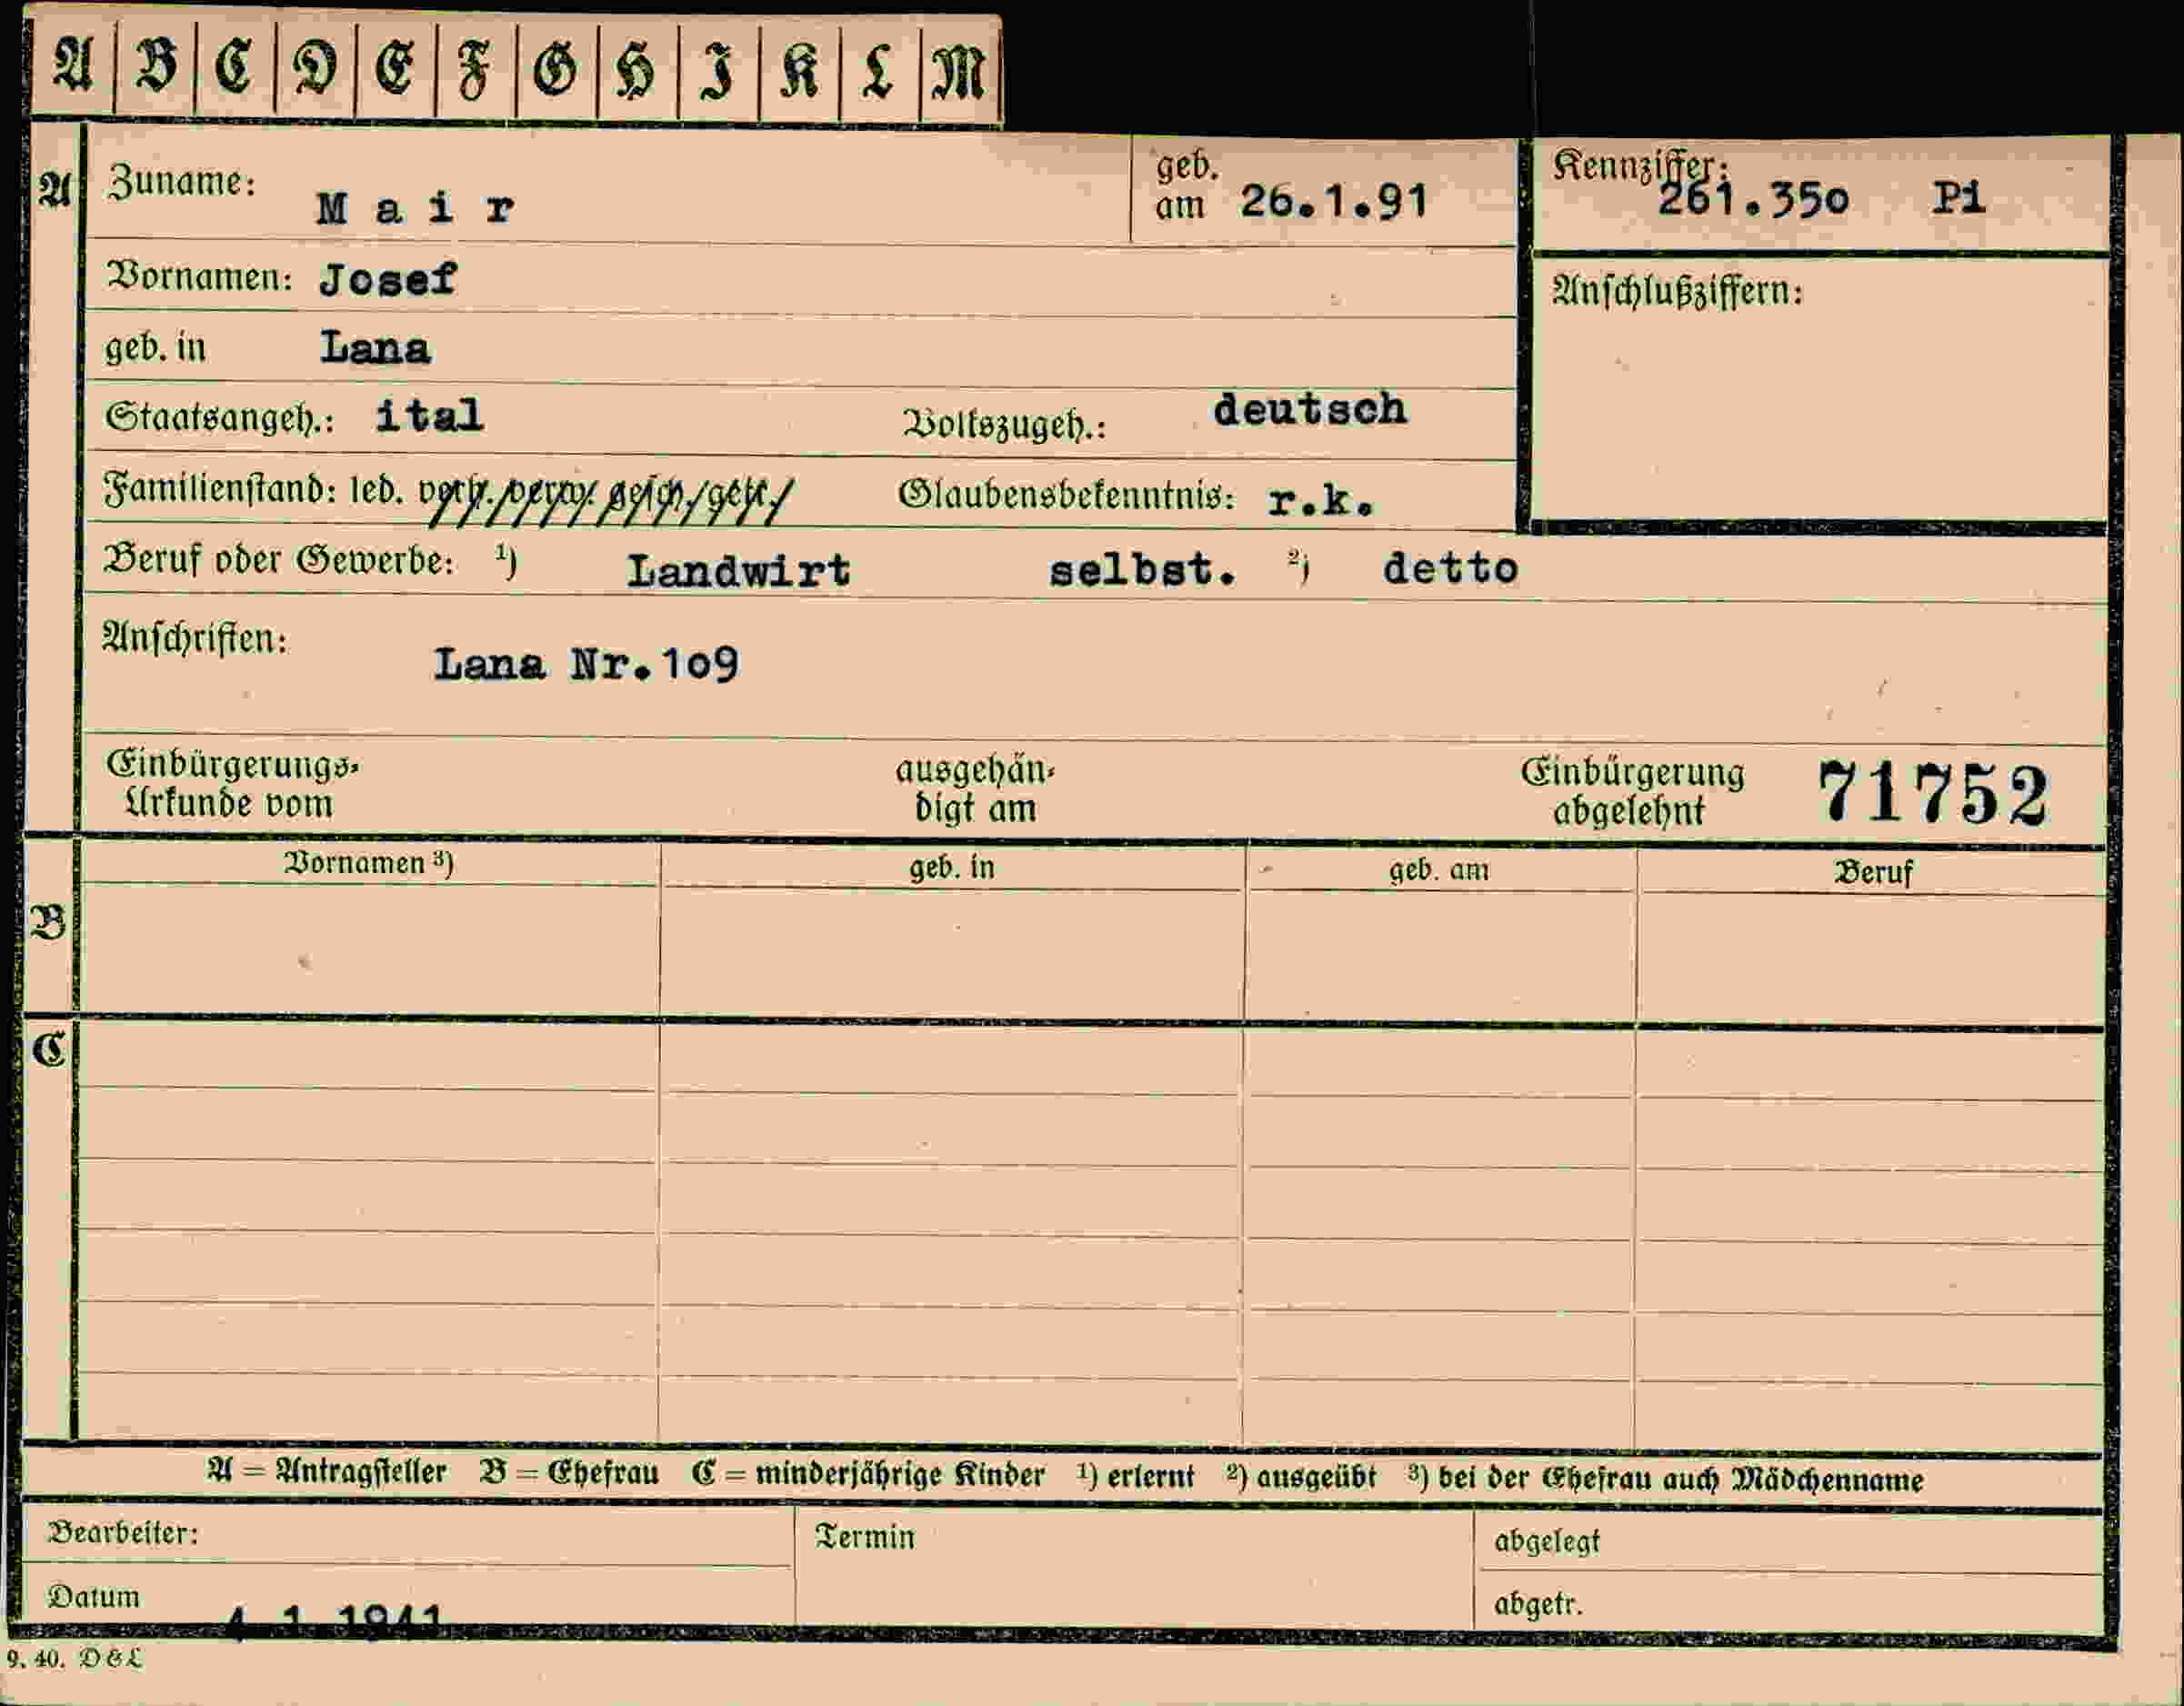 A B C D E F G H I K L M
A Zuname: Mair geb. am 26.1.91 Kennziffer: 261.35o Pi
Vornamen: Josef
Anschlußziffern:
geb. in Lana
Staatsangeh.: ital Volkszugeh.: deutsch
Familienstand: led. verh. verw. gesch. getr. Glaubensbekenntnis: r.k.
Beruf oder Gewerbe: ¹) Landwirt selbst. ²) detto
Anschriften: Lana Nr.1o9
Einbürgerungs- ausgehän- Einbürgerung 71752
Urkunde vom digt am abgelehnt
Vornamen ³) geb. in geb. am Beruf
B
C
A = Antragsteller B = Ehefrau C = minderjährige Kinder ¹) erlernt ²) ausgeübt ³) bei der Ehefrau auch Mädchenname
Bearbeiter: Termin abgelegt
Datum 4 1 1941 abgetr.
9. 40. D & L